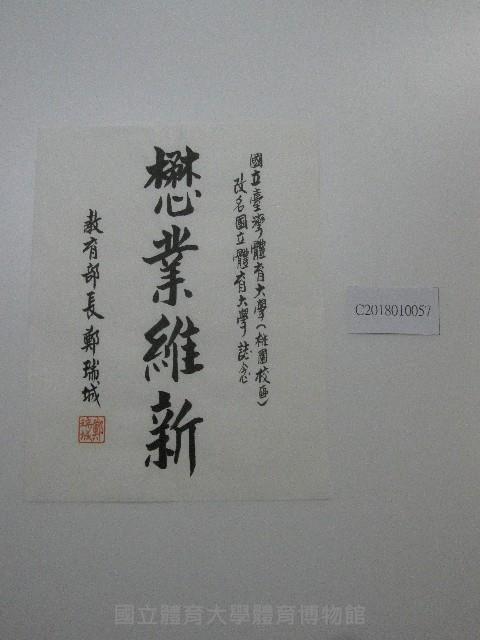 國立臺灣體育大學(桃園校區)
改名國立體育大學誌念
懋業維新
教育部長鄭瑞城
鄭瑞城
C2018010057
國立體育大學體育博物館